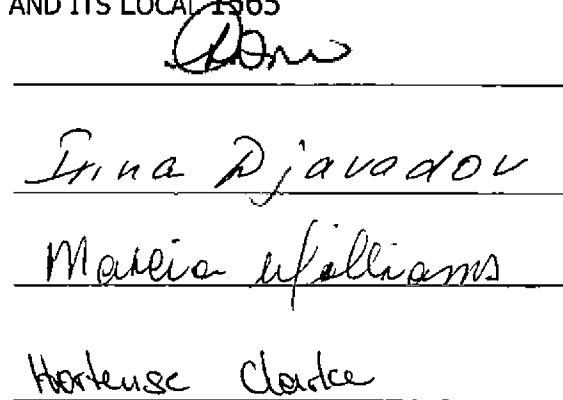 AND ITS LOCAL 1565
Irina Djavadov
Marcia Williams
Hortense Clarke